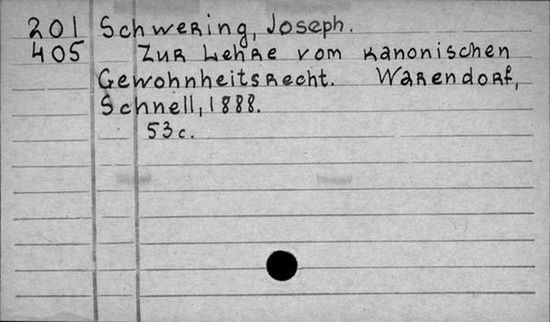 201 Schwering, Joseph.
405 Zur Lehre vom kanonischen
Gewohnheitsrecht. Warendorf,
Schnell, 1888.
53c.